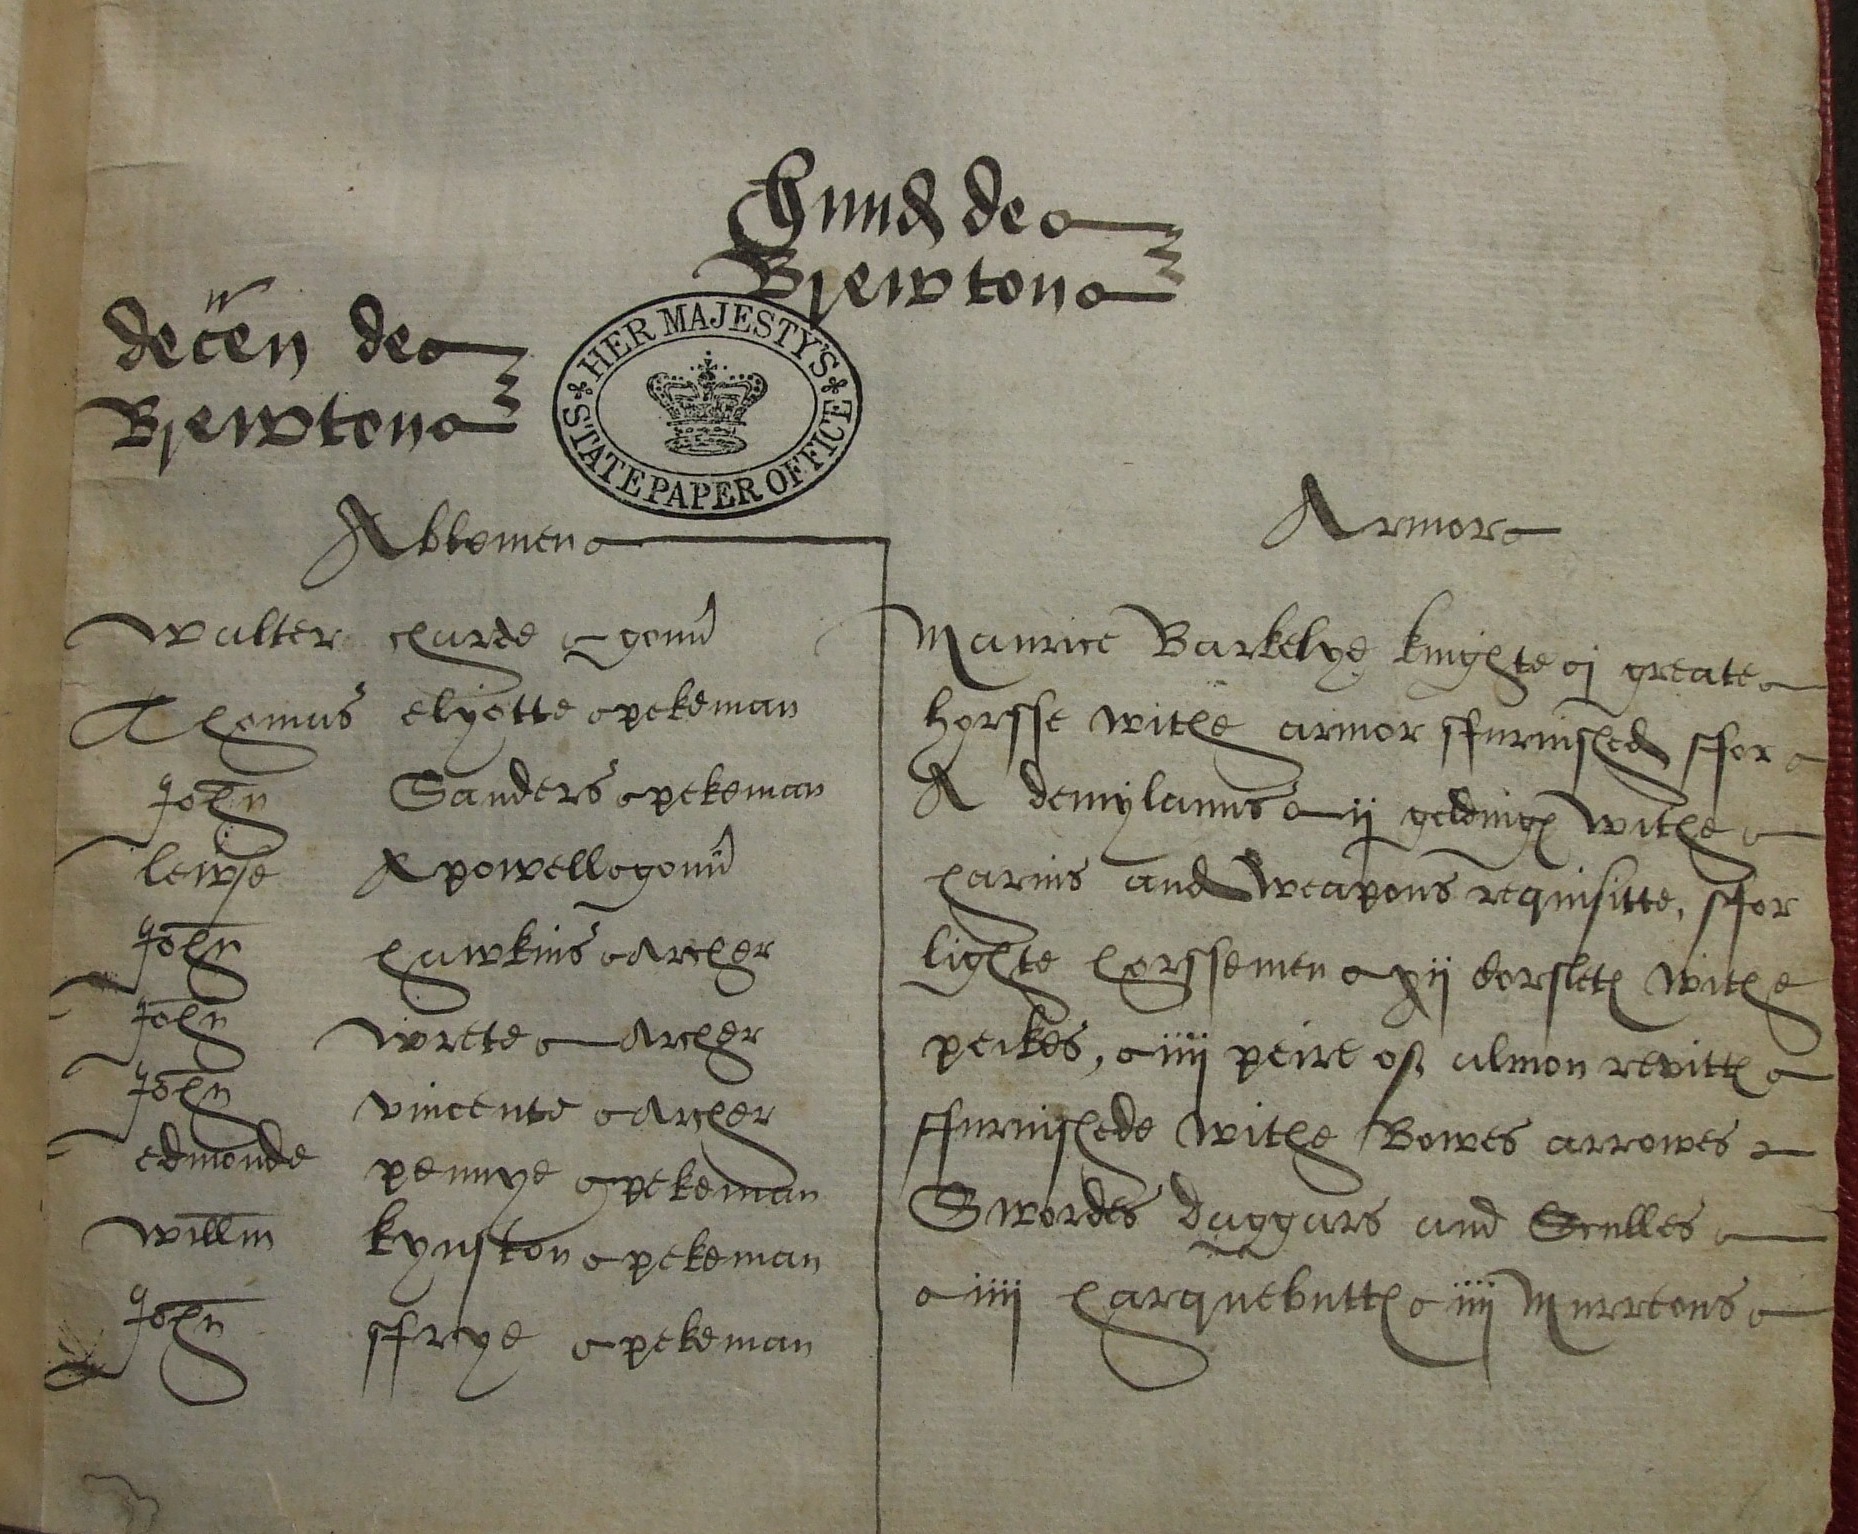 Hund de
Brewton
decen de
Brewton
HER MAJESTY'S
STATE PAPER OFFICE
Ablemen
Walter charde gonn
Thomas elyotte pekeman
John Sanders pekeman
lewse Apowell gonn
John hawkins Archer
John wrete Archer
John vincente Archer
edmonde pennye pekeman
willm kynston pekeman
John ffrye pekeman
Armor
Maurice Barkelye knighte j greate
horsse withe armor ffurnished ffor
A demylauns ij geldings withe
harnis and weapons requisitte, ffor
lighte horssemen xij corslets withe
peikes, iiij peire of almon revitts
ffurnishede withe Bowes arrowes
Swordes daggars and Sculles
iiij harquebutts iiij Murreons